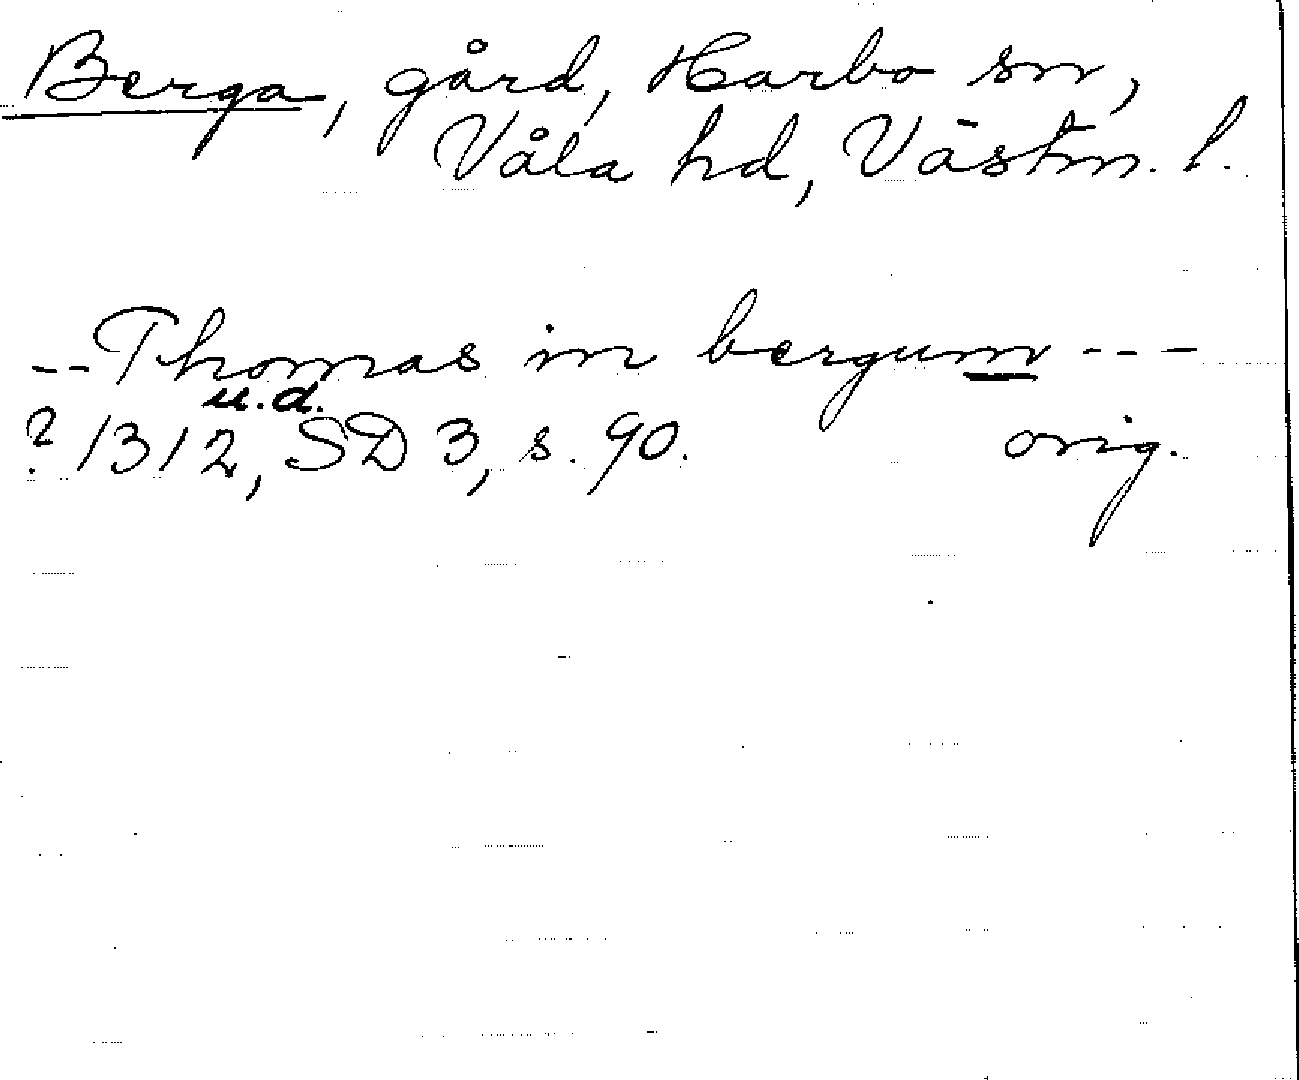 Berga, gård, Harbo sn,
Våla hd, Västm. l.
-- Thomas in bergum ---
u.d.
? 1312, SD 3, s. 90. orig.